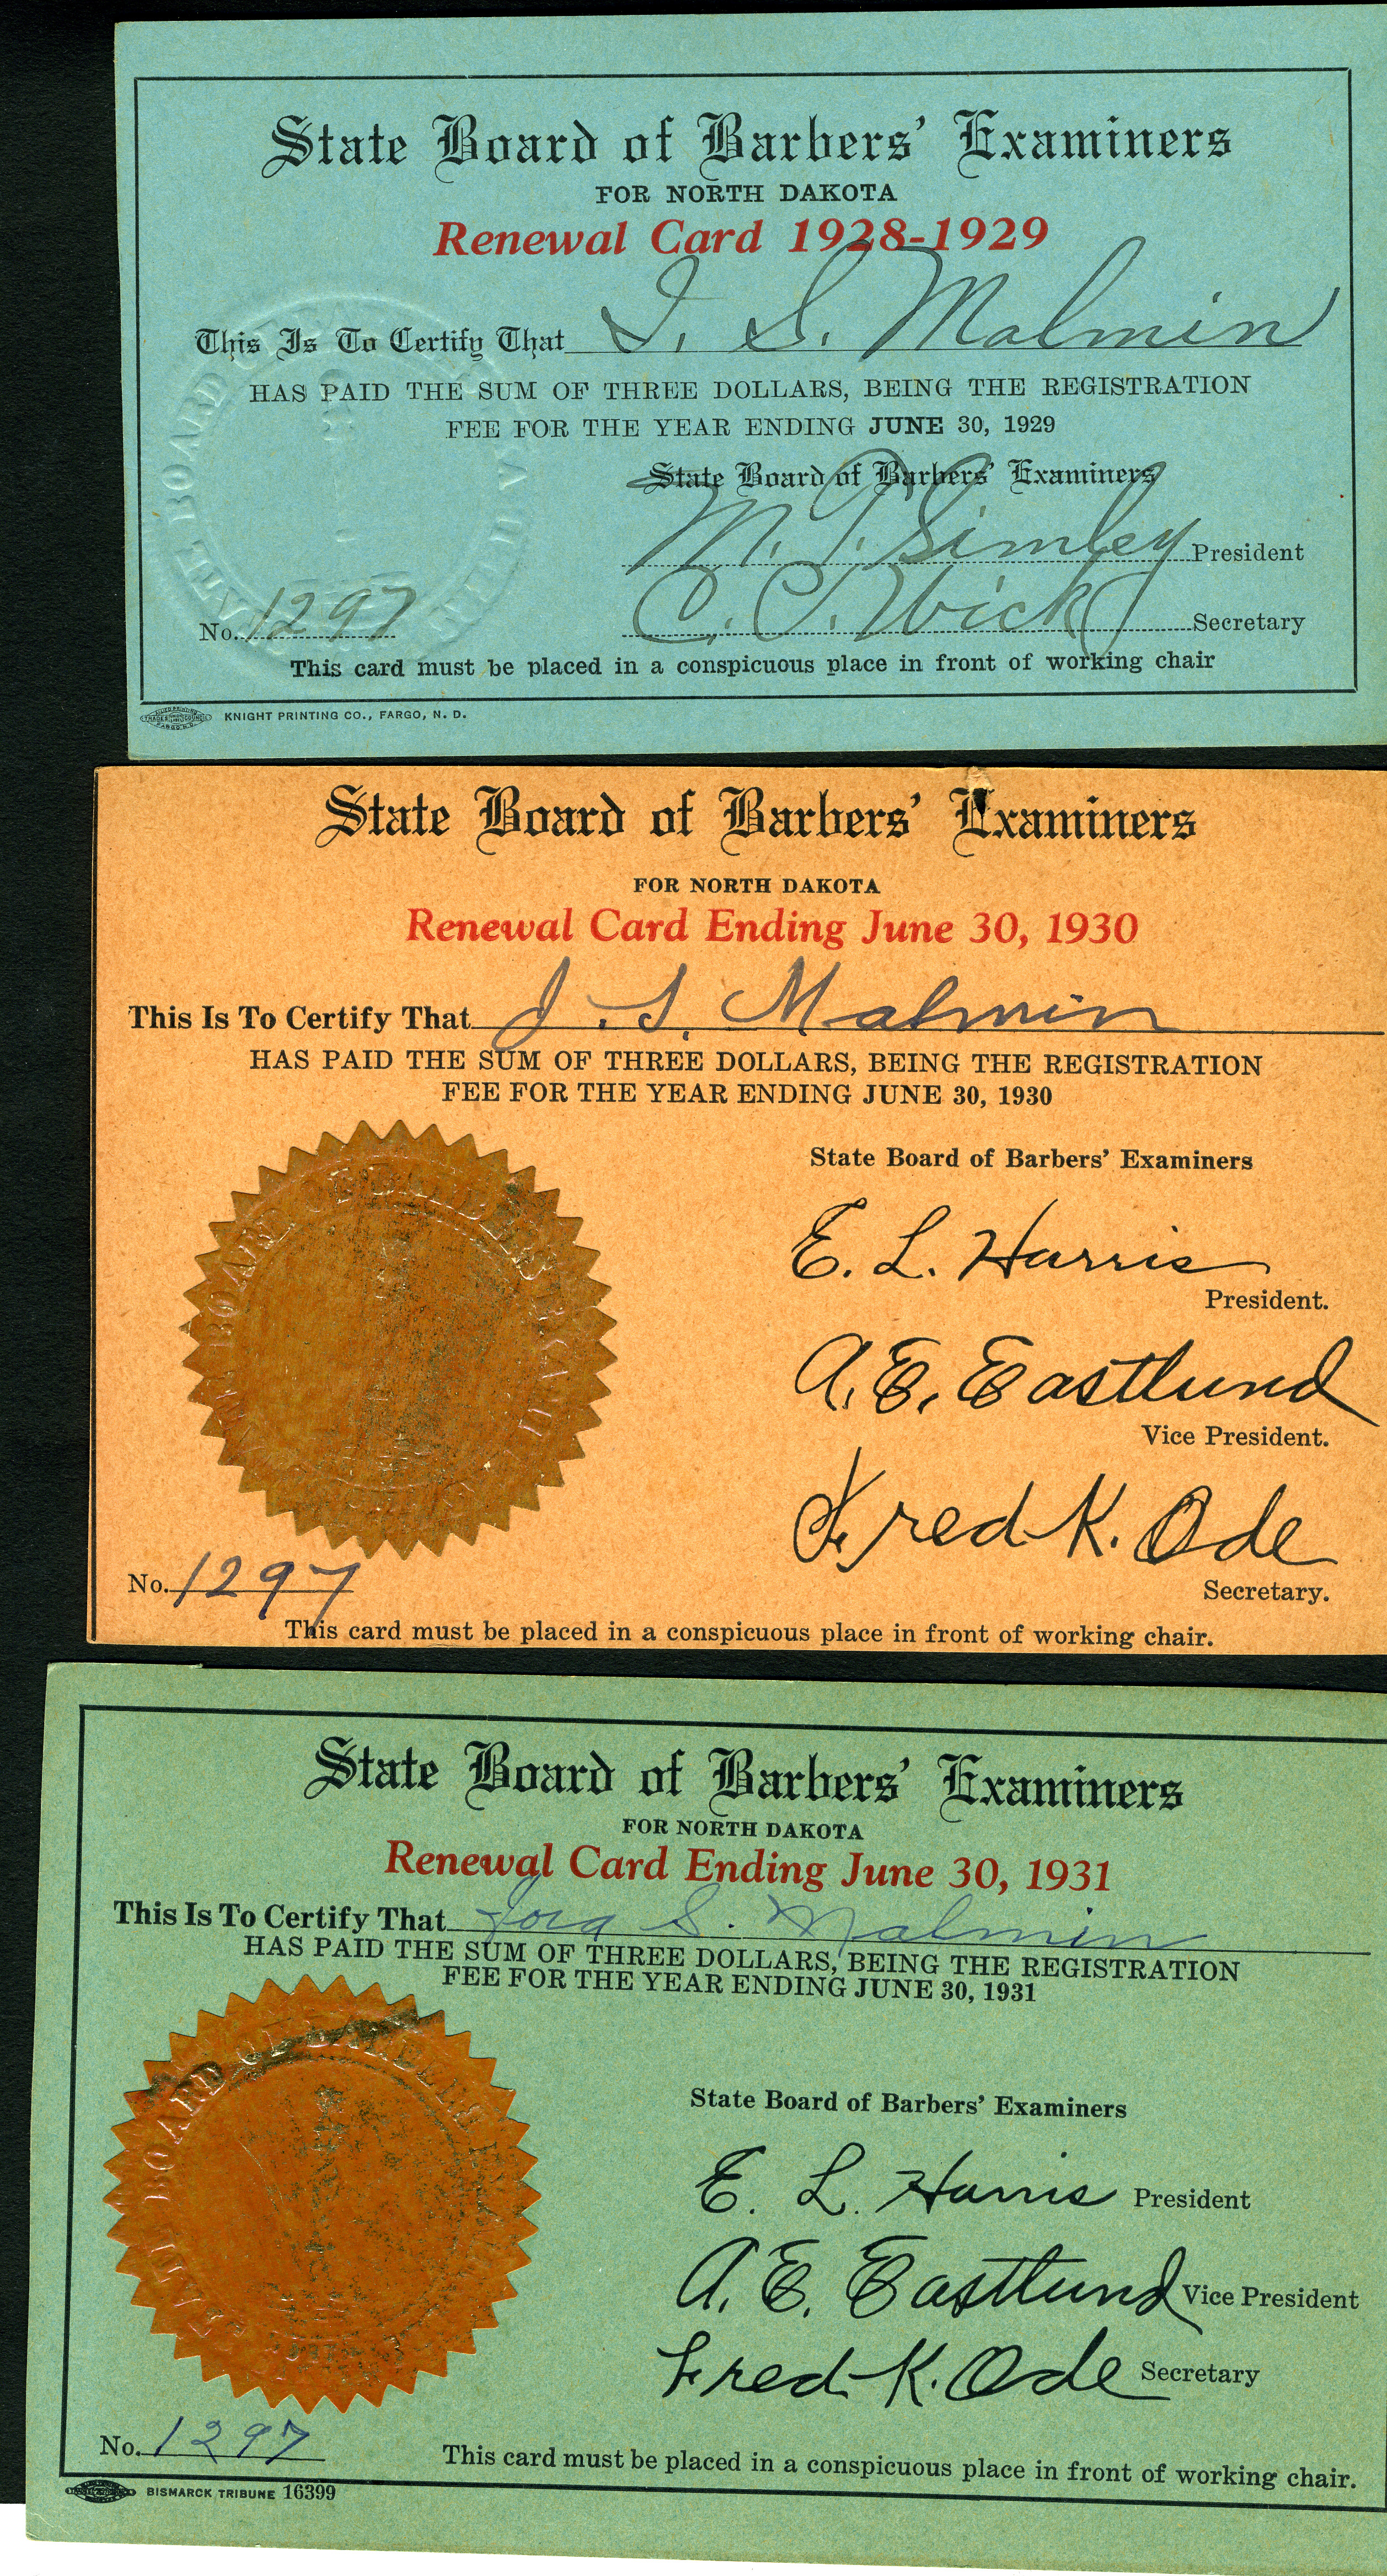 State Board of Barbers' Examiners
FOR NORTH DAKOTA
Renewal Card 1928-1929
This Is To Certify That I. S. Malmin
HAS PAID THE SUM OF THREE DOLLARS, BEING THE REGISTRATION
FEE FOR THE YEAR ENDING JUNE 30, 1929
State Board of Barbers' Examiners
M. T. Simley President
C. C. Wick Secretary
No. 1297
This card must be placed in a conspicuous place in front of working chair
KNIGHT PRINTING CO., FARGO, N. D.
State Board of Barbers' Examiners
FOR NORTH DAKOTA
Renewal Card Ending June 30, 1930
This Is To Certify That J. S. Malmin
HAS PAID THE SUM OF THREE DOLLARS, BEING THE REGISTRATION
FEE FOR THE YEAR ENDING JUNE 30, 1930
State Board of Barbers' Examiners
E. L. Harris
President.
A. E. Eastlund
Vice President.
Fred K. Ode
Secretary.
No. 1297
This card must be placed in a conspicuous place in front of working chair.
State Board of Barbers' Examiners
FOR NORTH DAKOTA
Renewal Card Ending June 30, 1931
This Is To Certify That S. Malmin
HAS PAID THE SUM OF THREE DOLLARS, BEING THE REGISTRATION
FEE FOR THE YEAR ENDING JUNE 30, 1931
BOARD OF
State Board of Barbers' Examiners
E. L. Harris President
A. E. Eastlund Vice President
Fred K. Ode Secretary
No. 1297
This card must be placed in a conspicuous place in front of working chair.
BISMARCK TRIBUNE 16399